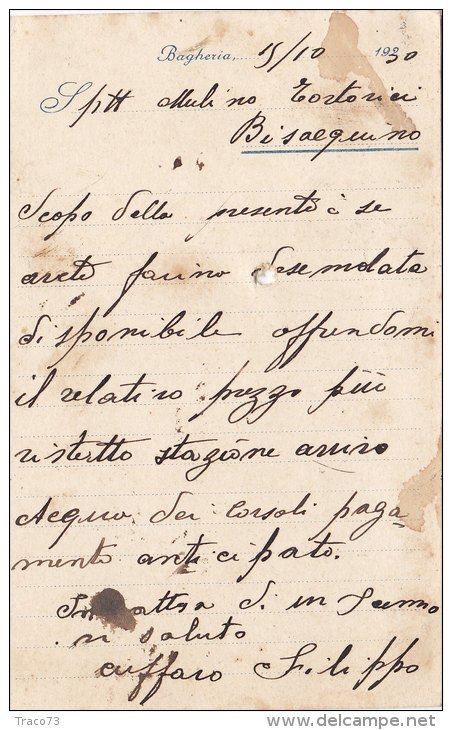 Bagheria, 15/10 1920 30
Spett Mulino Tortorici
Bisacquino
Scopo della presente è se
avete farina di semolata
disponibile offrendomi
il relativo prezzo più
ristretto stazione arrivo
Acqua dei Corsali paga-
mento anticipato.
In attesa di un
vi saluto
Cuffaro Filippo
Traco73
www.delcampe.net